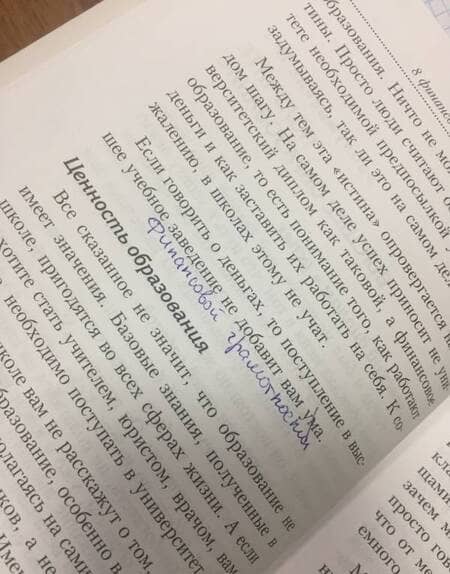 8 финанс
образования. Ничто не мо
тины. Просто люди считают
тете необходимой предпосылкой
задумываясь, так ли это на самом де
Между тем эта «истина» опровергается
дом шагу. На самом деле успех приносит не уни-
верситетский диплом как таковой, а финансовое
образование, то есть понимание того, как работают
деньги и как заставить их работать на себя. К со-
жалению, в школах этому не учат.
Если говорить о деньгах, то поступление в выс-
шее учебное заведение не добавит вам ума.
Финансовой грамотности
Ценность образования
Все сказанное не значит, что образование не
имеет значения. Базовые знания, полученные в
школе, пригодятся во всех сферах жизни. А если
хотите стать учителем, юристом, врачом, вам
необходимо поступать в университет
коле вам не расскажут о том,
бразование, особенно в
олагаясь на сами
ков, а не
Имен
кла
шами
зачем м
просто тов
что от ме
емного